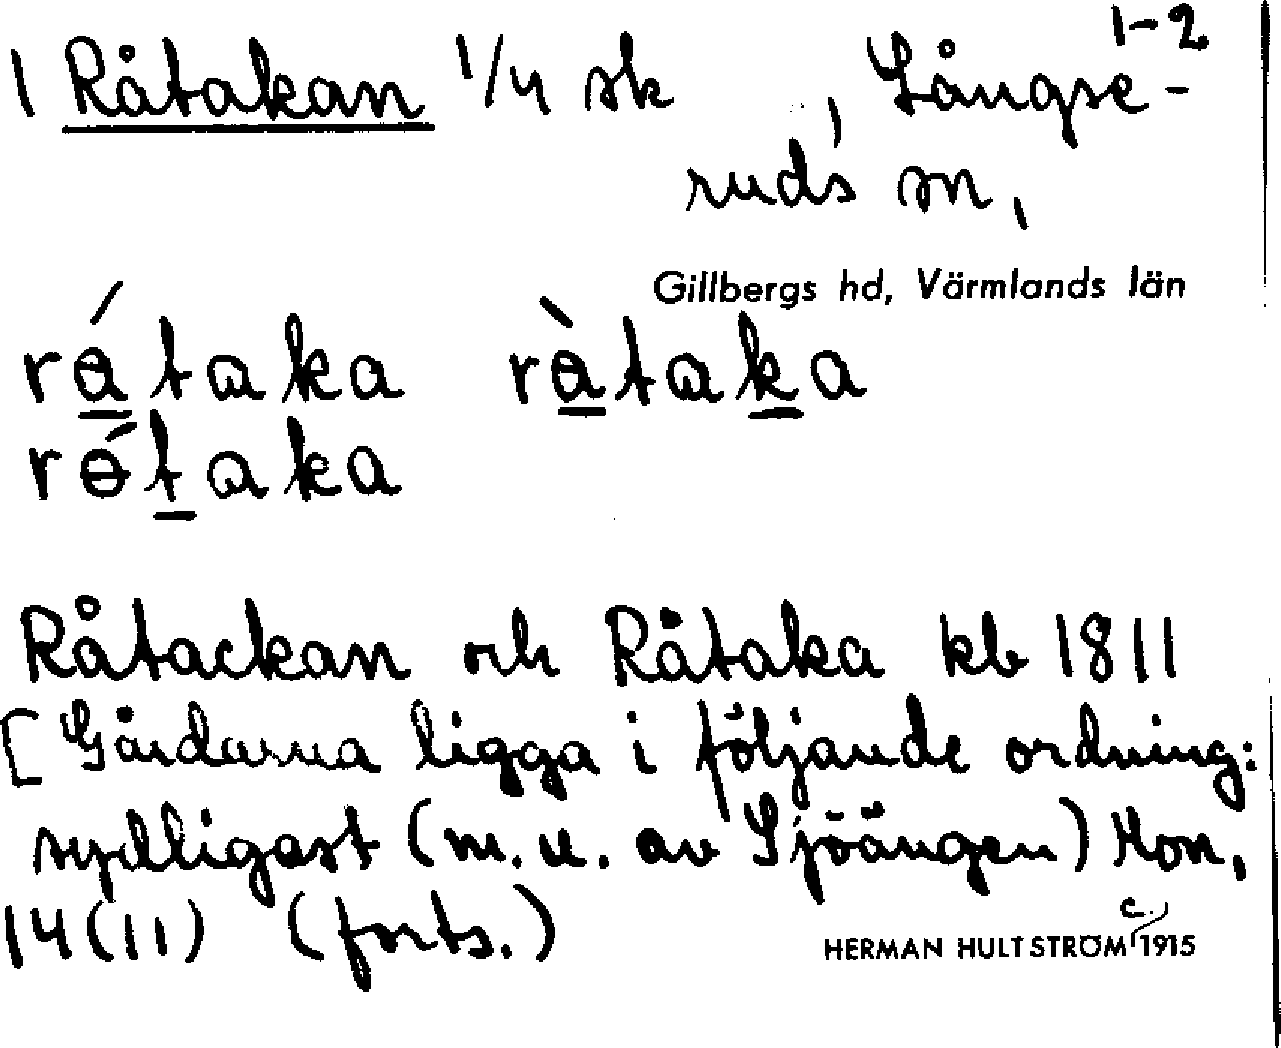 1-2
1 Råtakan 1/4 sk , Långse-
ruds sn,
Gillbergs hd, Värmlands län
rátaka ràtaka
rɵ́taka
Råtackan och Råtaka kb 1811
[Gårdarna ligga i följande ordning:
sydligast (m. u. av Sjöängen) Mon,
14(11) (forts.)
HERMAN HULTSTRÖM c. 1915